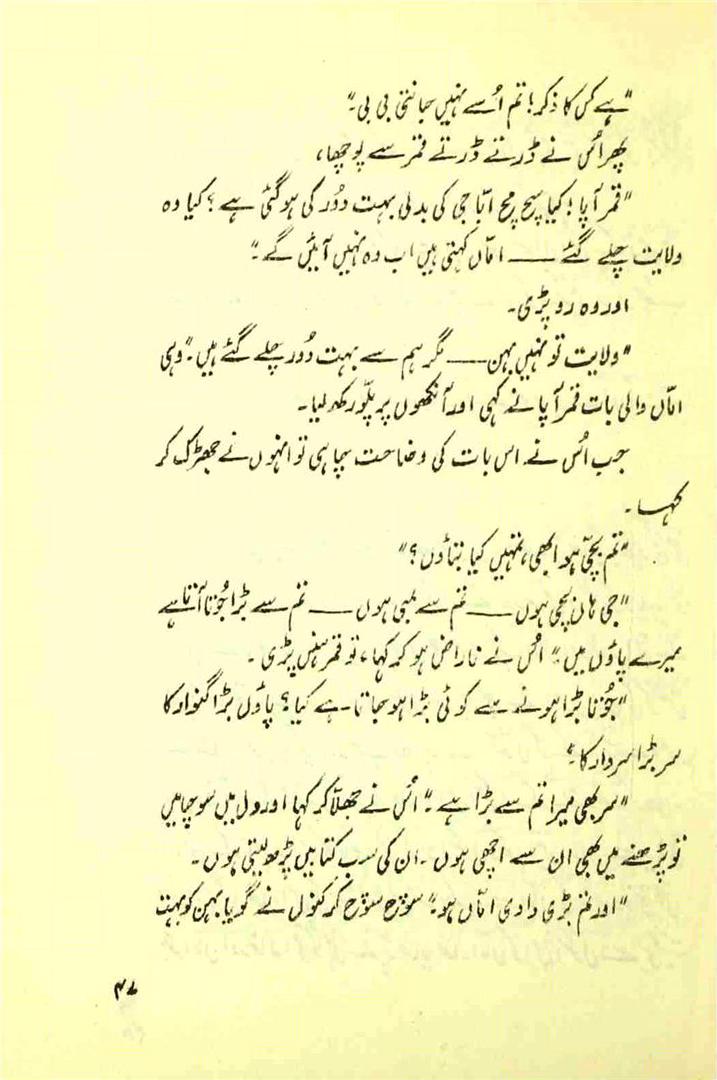 "ہے کس کا ذکر! تم اُسے نہیں جانتی بی بی۔"
پھر اُس نے ڈرتے ڈرتے قمر سے پوچھا،
"قمر آپا! کیا سچ مچ ابّا جی کی بدلی بہت دُور کی ہوگئی ہے؟ کیا وہ
ولایت چلے گئے —— امّاں کہتی ہیں اب وہ نہیں آئیں گے۔"
اور وہ رو پڑی۔
"ولایت تو نہیں بہن —— مگر ہم سے بہت دُور چلے گئے ہیں۔" وہی
امّاں والی بات قمر آپا نے کہی اور آنکھوں پر پلّو رکھ لیا۔
جب اُس نے اس بات کی وضاحت چاہی تو انہوں نے جھڑک کر
کہا۔
"تم بچّی ہو ابھی، تمہیں کیا بتاؤں؟"
"جی ہاں بچی ہوں —— تم سے لمبی ہوں —— تم سے بڑا جُوتا آتا ہے
میرے پاؤں میں۔" اُس نے ناراض ہو کر کہا، تو قمر ہنس پڑی۔
"جُوتا بڑا ہونے سے کوئی بڑا ہو جاتا ہے کیا؟ پاؤں بڑا گنوار کا
سر بڑا سردار کا۔"
"سر بھی میرا تم سے بڑا ہے۔" اُس نے جھلّا کر کہا اور دل میں سوچا میں
تو پڑھنے میں بھی ان سے اچھی ہوں۔ ان کی سب کتابیں پڑھ لیتی ہوں۔
"اور تم بڑی دادی امّاں ہو۔" سوچ سوچ کر کنول نے گویا بہن کو بہت
۴۷